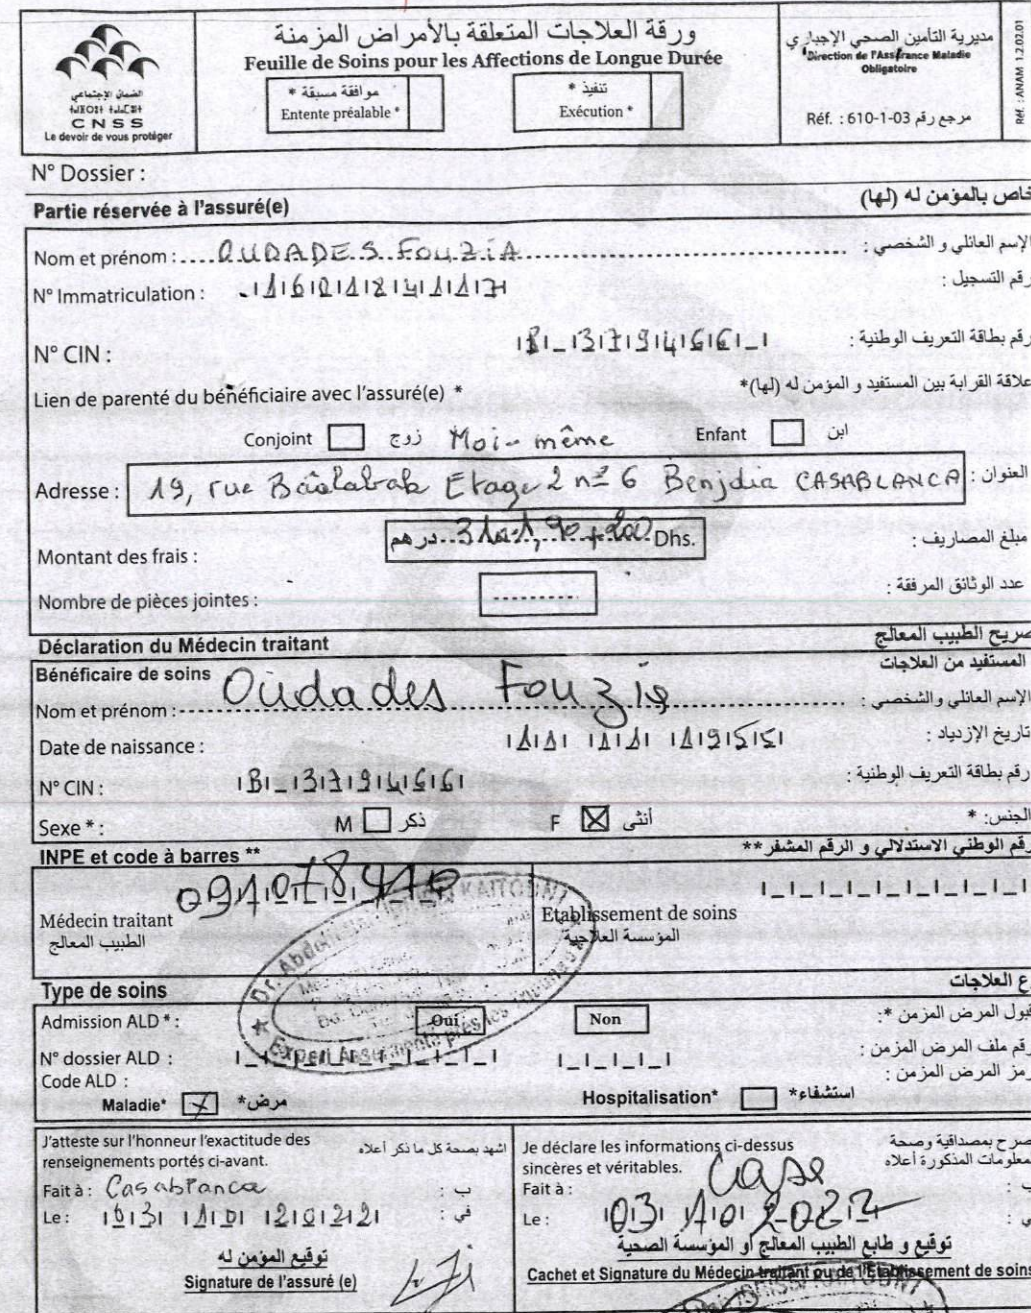 ورقة العلاجات المتعلقة بالأمراض المزمنة
Feuille de Soins pour les Affections de Longue Durée
موافقة مسبقة *
Entente préalable *
تنفيذ *
Exécution *
مديرية التأمين الصحي الإجباري
Direction de l'Assurance Maladie
Obligatoire
Réf. : 610-1-03 مرجع رقم
Réf. : ANAM 1.2.02.01
الضمان الإجتماعي
CNSS
Le devoir de vous protéger
N° Dossier :
Partie réservée à l'assuré(e) خاص بالمؤمن له (لها)
Nom et prénom : OUDADES FOUZIA الإسم العائلي و الشخصي :
N° Immatriculation : رقم التسجيل :
N° CIN : B 379466 رقم بطاقة التعريف الوطنية :
Lien de parenté du bénéficiaire avec l'assuré(e) * علاقة القرابة بين المستفيد و المؤمن له (لها)*
Conjoint زوج Moi-même Enfant ابن
Adresse : 19, rue Etage 2 n° 6 Benjdia CASABLANCA العنوان :
Montant des frais : درهم Dhs. مبلغ المصاريف :
Nombre de pièces jointes : عدد الوثائق المرفقة :
Déclaration du Médecin traitant صريح الطبيب المعالج
Bénéficaire de soins المستفيد من العلاجات
Nom et prénom : Oudades Fouzia الإسم العائلي والشخصي :
Date de naissance : 11 11 1955 تاريخ الإزدياد :
N° CIN : B 379466 رقم بطاقة التعريف الوطنية :
Sexe * : M ذكر F أنثى الجنس: *
INPE et code à barres ** رقم الوطني الاستدلالي و الرقم المشفر **
Médecin traitant
الطبيب المعالج
Etablissement de soins
المؤسسة العلاجية
Type de soins ع العلاجات
Admission ALD * : Oui Non قبول المرض المزمن *:
N° dossier ALD : رقم ملف المرض المزمن :
Code ALD : رمز المرض المزمن :
Maladie* مرض* Hospitalisation* استشفاء*
J'atteste sur l'honneur l'exactitude des
renseignements portés ci-avant.
اشهد بصحة كل ما ذكر أعلاه
Fait à : Casablanca ب :
Le : 03 10 2022 في :
توقيع المؤمن له
Signature de l'assuré (e)
Je déclare les informations ci-dessus
sincères et véritables.
صرح بمصداقية وصحة
المعلومات المذكورة أعلاه
Fait à : Casa
Le : 03 10 2022
توقيع و طابع الطبيب المعالج أو المؤسسة الصحية
Cachet et Signature du Médecin traitant ou de l'Etablissement de soins